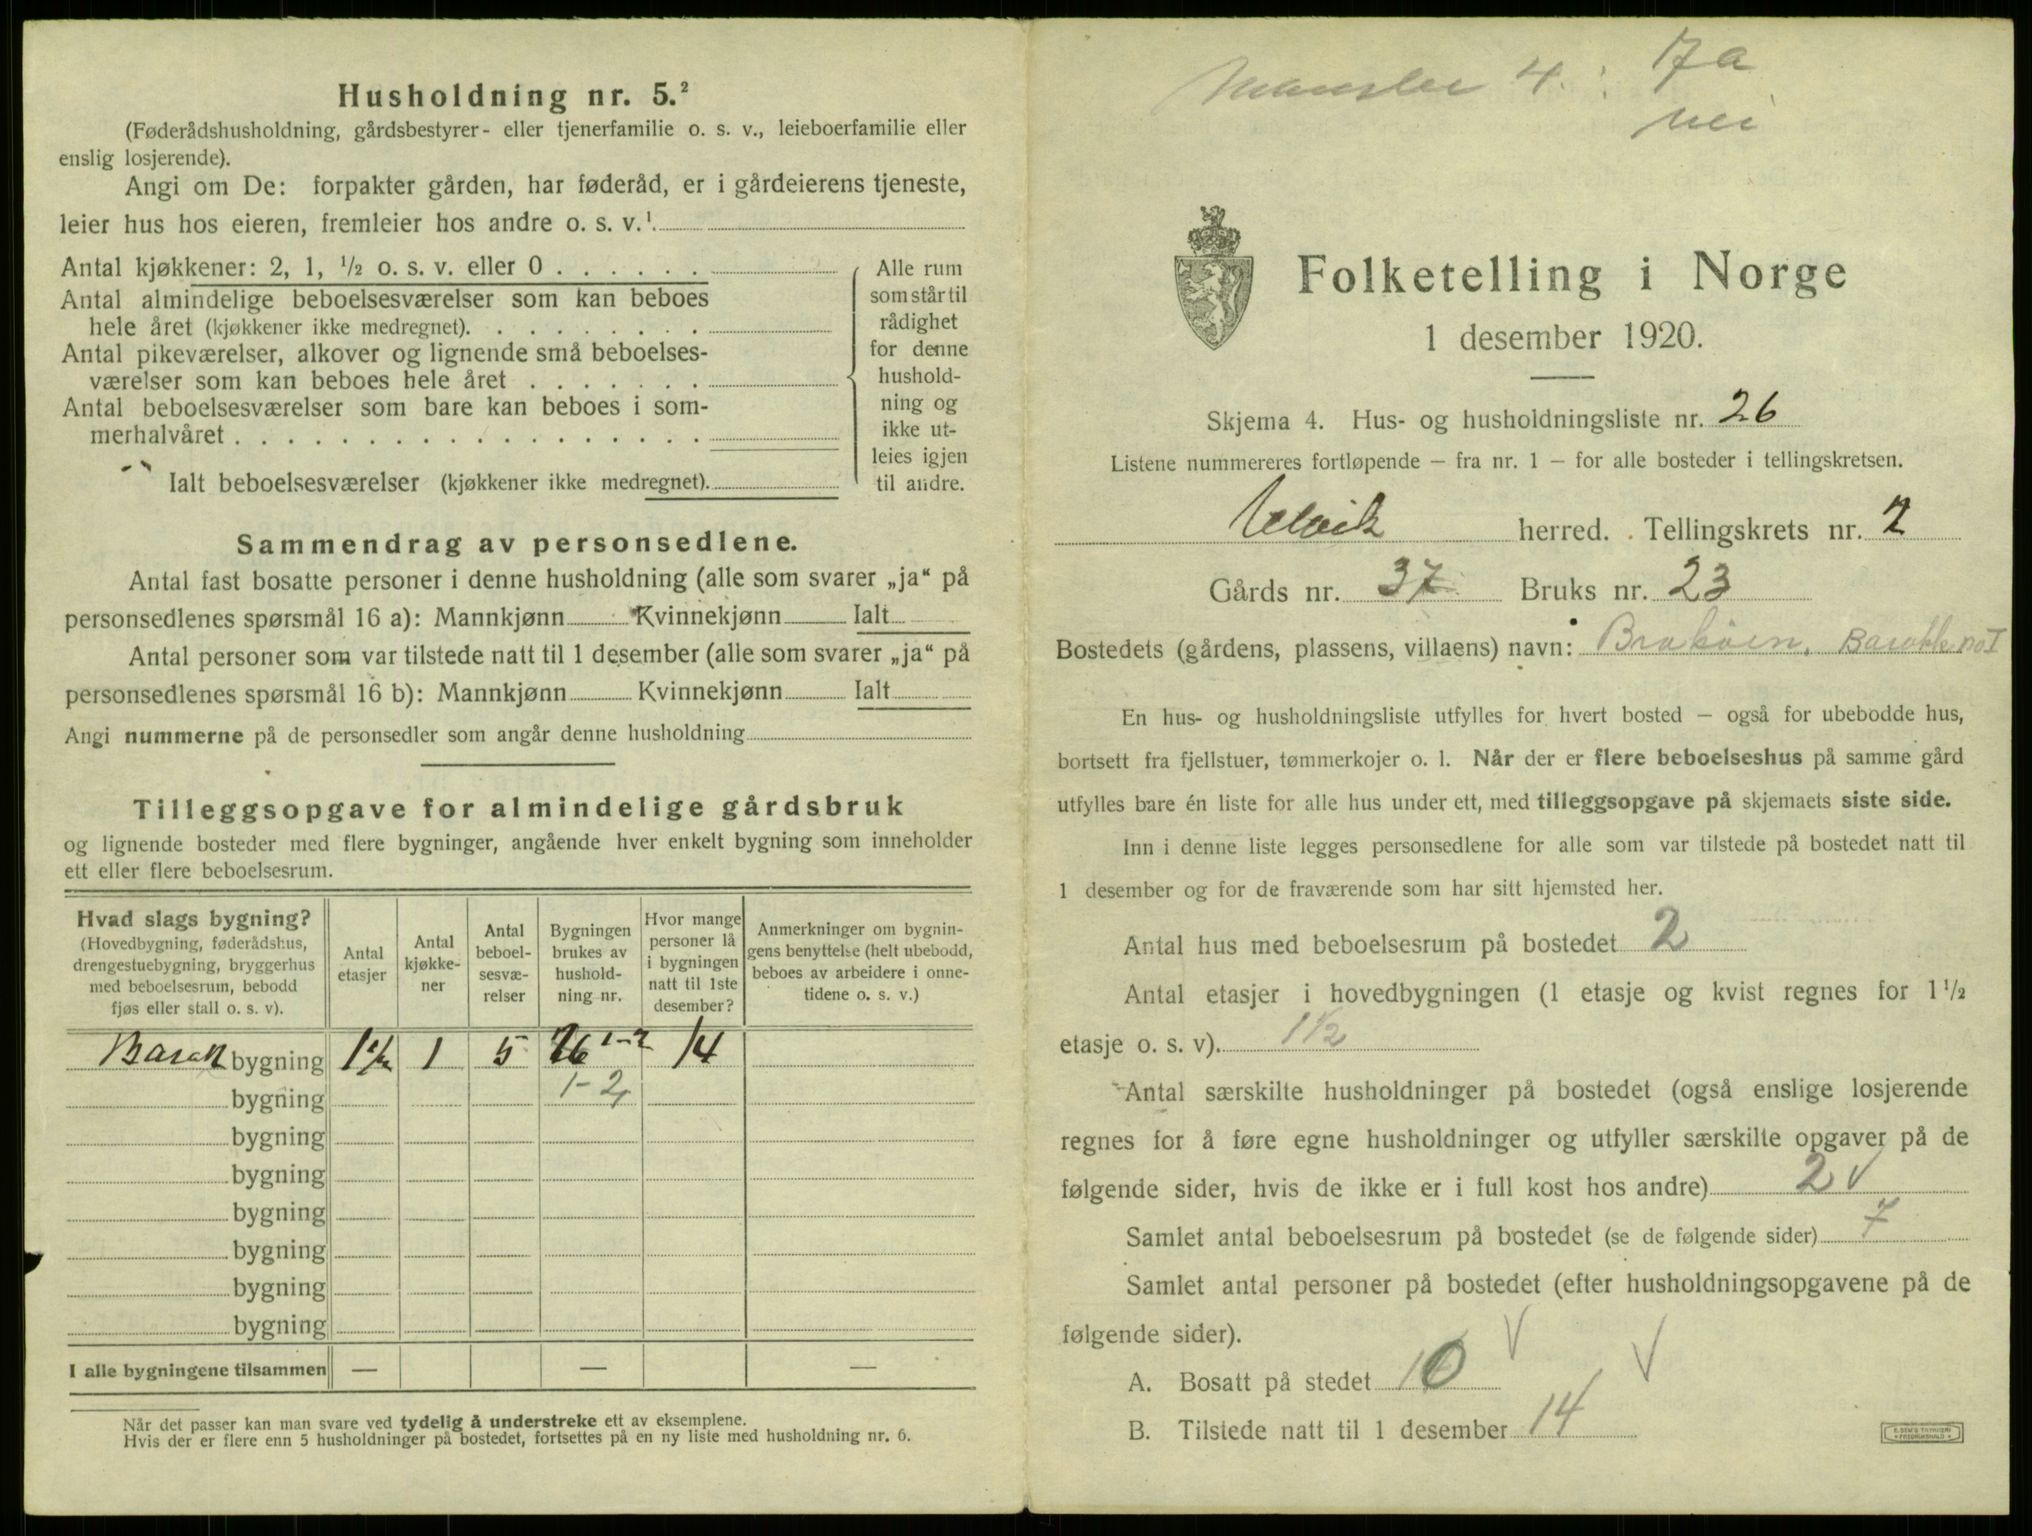 Husholdning nr. 5.²
(Føderådshusholdning, gårdsbestyrer- eller tjenerfamilie o. s. v., leieboerfamilie eller
enslig losjerende).
Angi om De: forpakter gården, har føderåd, er i gårdeierens tjeneste,
leier hus hos eieren, fremleier hos andre o. s. v.¹
Antal kjøkkener: 2, 1, ½ o. s. v. eller 0 . . . . . .
Antal almindelige beboelsesværelser som kan beboes
hele året (kjøkkener ikke medregnet). . . . . . . . .
Antal pikeværelser, alkover og lignende små beboelses-
værelser som kan beboes hele året . . . . . . .
Antal beboelsesværelser som bare kan beboes i som-
merhalvåret . . . . . . . . . . . . . . . . . .
Ialt beboelsesværelser (kjøkkener ikke medregnet).
Alle rum
som står til
rådighet
for denne
hushold-
ning og
ikke ut-
leies igjen
til andre.
Sammendrag av personsedlene.
Antal fast bosatte personer i denne husholdning (alle som svarer „ja“ på
personsedlenes spørsmål 16 a): Mannkjønn Kvinnekjønn Ialt
Antal personer som var tilstede natt til 1 desember (alle som svarer „ja“ på
personsedlenes spørsmål 16 b): Mannkjønn Kvinnekjønn Ialt
Angi nummerne på de personsedler som angår denne husholdning
Tilleggsopgave for almindelige gårdsbruk
og lignende bosteder med flere bygninger, angående hver enkelt bygning som inneholder
ett eller flere beboelsesrum.
Hvad slags bygning?
(Hovedbygning, føderådshus,
drengestuebygning, bryggerhus
med beboelsesrum, bebodd
fjøs eller stall o. s. v).
Antal
etasjer
Antal
kjøkke-
ner
Antal
beboel-
sesvæ-
relser
Bygningen
brukes av
hushold-
ning nr.
Hvor mange
personer lå
i bygningen
natt til 1ste
desember?
Anmerkninger om bygnin-
gens benyttelse (helt ubebodd,
beboes av arbeidere i onne-
tidene o. s. v.)
Barak bygning 1½ 1 5 26 1-2 14
bygning 1-2
bygning
bygning
bygning
bygning
bygning
bygning
I alle bygningene tilsammen — — —
Når det passer kan man svare ved tydelig å understreke ett av eksemplene.
Hvis der er flere enn 5 husholdninger på bostedet, fortsettes på en ny liste med husholdning nr. 6.
Mangler 4 : 17a
nei
Folketelling i Norge
1 desember 1920.
Skjema 4. Hus- og husholdningsliste nr. 26
Listene nummereres fortløpende — fra nr. 1 — for alle bosteder i tellingskretsen.
Ulvik herred. Tellingskrets nr. 7
Gårds nr. 37 Bruks nr. 23
Bostedets (gårdens, plassens, villaens) navn: Barakke no I
En hus- og husholdningsliste utfylles for hvert bosted — også for ubebodde hus,
bortsett fra fjellstuer, tømmerkojer o. l. Når der er flere beboelseshus på samme gård
utfylles bare én liste for alle hus under ett, med tilleggsopgave på skjemaets siste side.
Inn i denne liste legges personsedlene for alle som var tilstede på bostedet natt til
1 desember og for de fraværende som har sitt hjemsted her.
Antal hus med beboelsesrum på bostedet 2
Antal etasjer i hovedbygningen (1 etasje og kvist regnes for 1½
etasje o. s. v). 1½
Antal særskilte husholdninger på bostedet (også enslige losjerende
regnes for å føre egne husholdninger og utfyller særskilte opgaver på de
følgende sider, hvis de ikke er i full kost hos andre) 2 √
Samlet antal beboelsesrum på bostedet (se de følgende sider) 7
Samlet antal personer på bostedet (efter husholdningsopgavene på de
følgende sider).
A. Bosatt på stedet 10 √
B. Tilstede natt til 1 desember 14 √